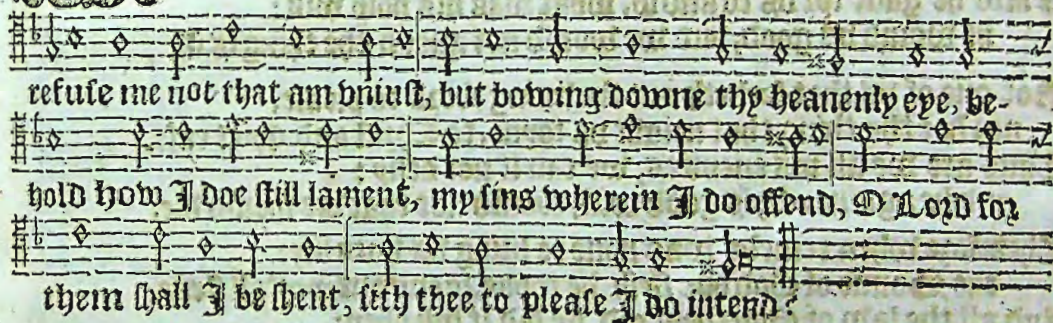 refuse me not that am vniust, but bowing downe thy heauenly eye, be-
hold how I doe still lament, my sins wherein I do offend, O Lord for
them shall I be shent, sith thee to please I do intend?